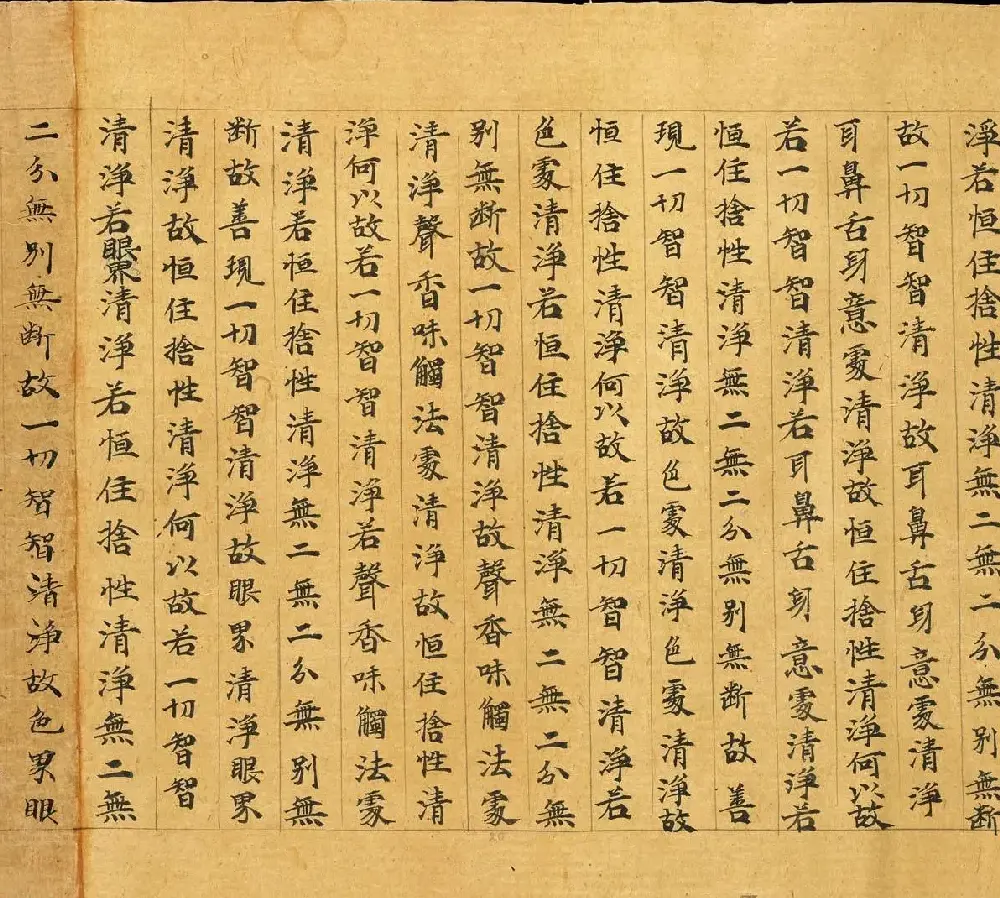 淨若恒住捨性清淨無二無二分無別無斷
故一切智智清淨故耳鼻舌身意處清淨
耳鼻舌身意處清淨故恒住捨性清淨何以故
若一切智智清淨若耳鼻舌身意處清淨若
恒住捨性清淨無二無二分無別無斷故善
現一切智智清淨故色處清淨色處清淨故
恒住捨性清淨何以故若一切智智清淨若
色處清淨若恒住捨性清淨無二無二分無
別無斷故一切智智清淨故聲香味觸法處
清淨聲香味觸法處清淨故恒住捨性清
淨何以故若一切智智清淨若聲香味觸法處
清淨若恒住捨性清淨無二無二分無別無
斷故善現一切智智清淨故眼界清淨眼界
清淨故恒住捨性清淨何以故若一切智智
清淨若眼界清淨若恒住捨性清淨無二無
二分無別無斷故一切智智清淨故色界眼